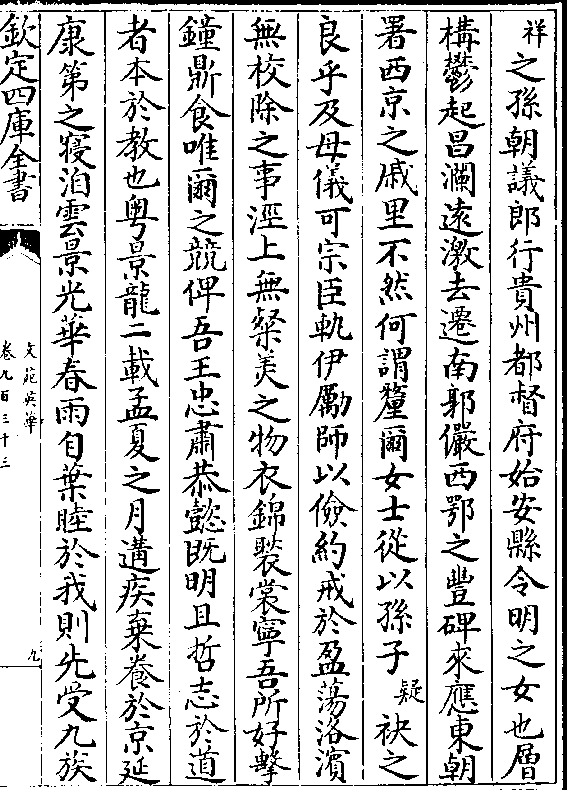 祥之孫朝議郎行貴州都督府始安縣令明之女也層
構鬱起昌瀾遠激去遷南郭儼西鄂之豐碑來應東朝
署西京之戚里不然何謂釐爾女士從以孫子疑袂之
良乎及母儀可宗臣軌伊勵師以儉約戒於盈蕩洛濱
無校除之事涇上無粲美之物衣錦褧裳寧吾所好擊
鐘鼎食唯爾之競俾吾王忠肅恭懿既明且哲志於道
者本於教也粤景龍二載孟夏之月遘疾棄養於京延
康第之寢洎雲景光華春雨自葉睦於我則先受九族
欽定四庫全書
文苑英華
卷九百三十三
九